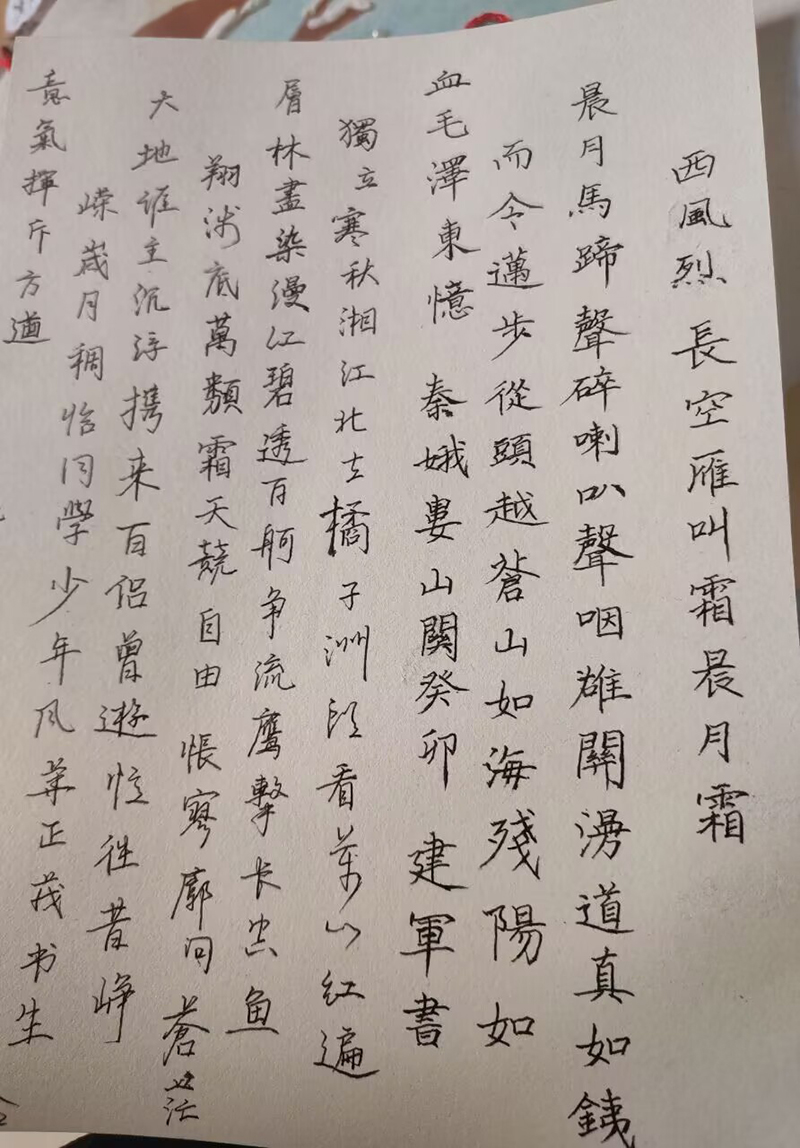 西風烈長空雁叫霜晨月霜
晨月馬蹄聲碎喇叭聲咽雄關漫道真如鐵
而今邁步從頭越蒼山如海殘陽如
血毛澤東憶秦娥婁山關癸卯建軍書
獨立寒秋湘江北去橘子洲頭看萬山紅遍
層林盡染漫江碧透百舸争流鹰擊长空鱼
翔浅底萬類霜天競自由悵寥廓问蒼茫
大地谁主沉浮携来百侣曾遊忆往昔峥
嵘崴月稠恰同學少年风华正茂书生
意氣揮斥方遒